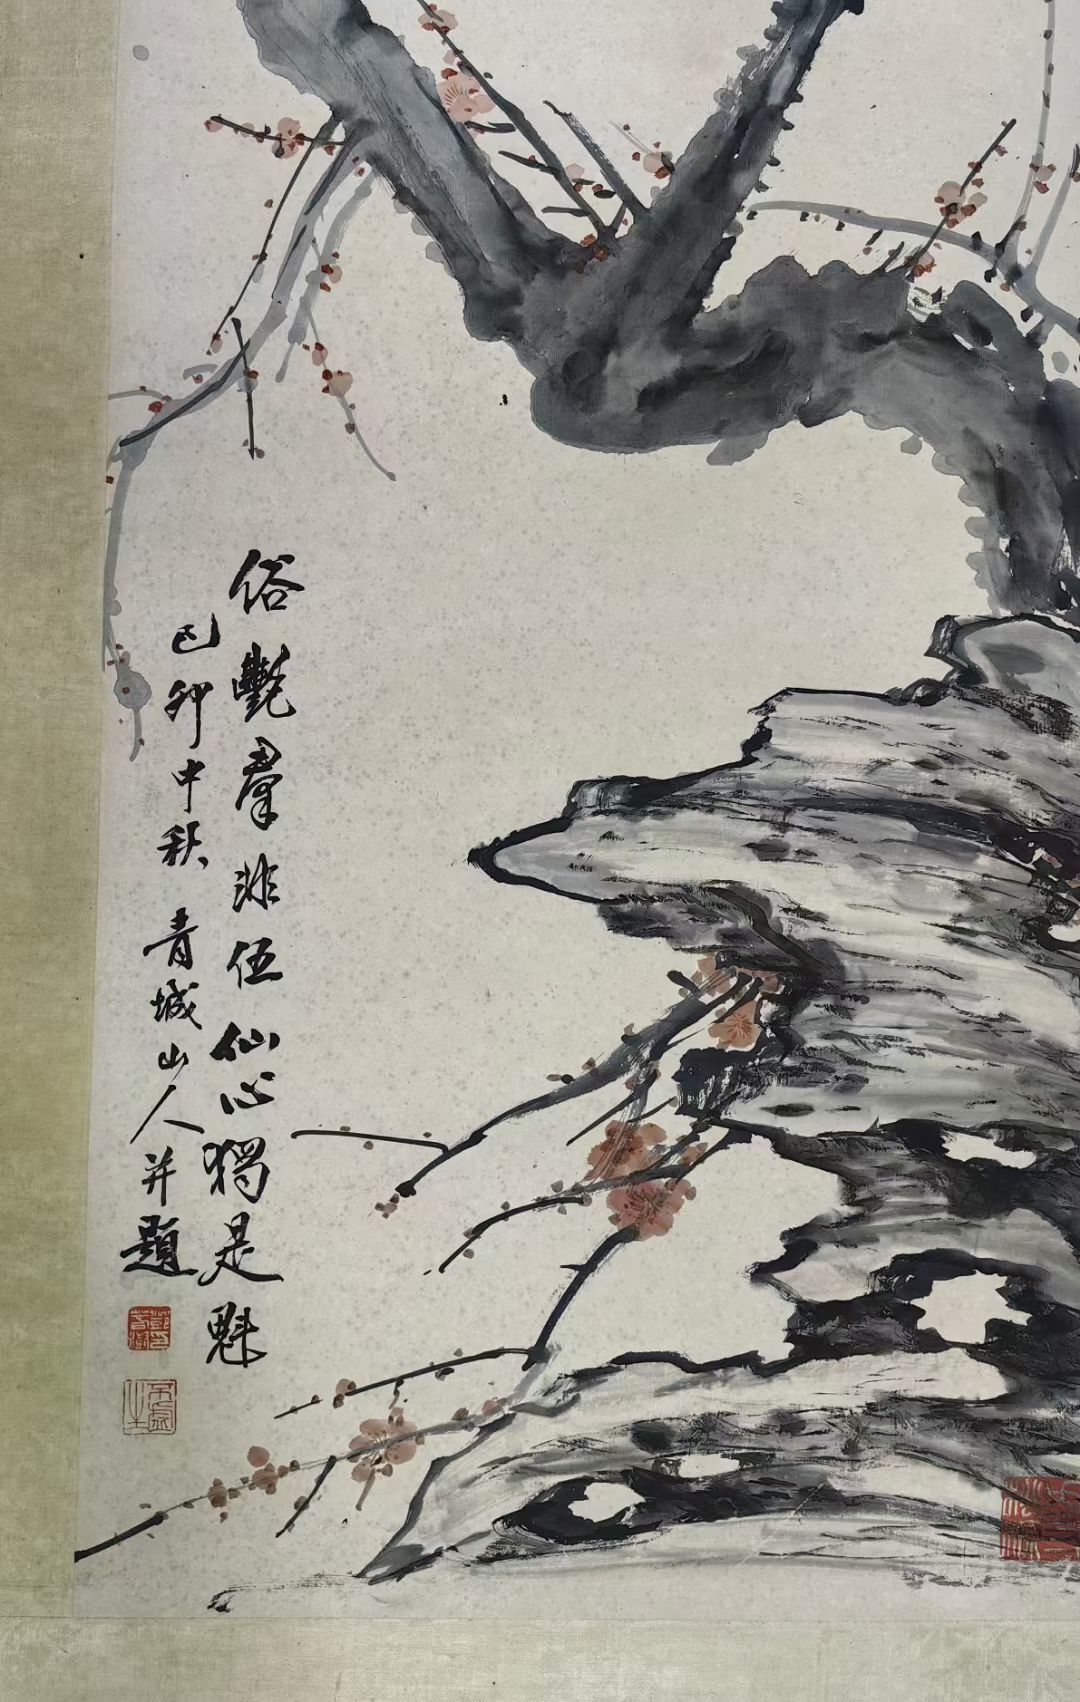 俗艷羣非伍仙心獨是魁
己卯中秋青城山人并題